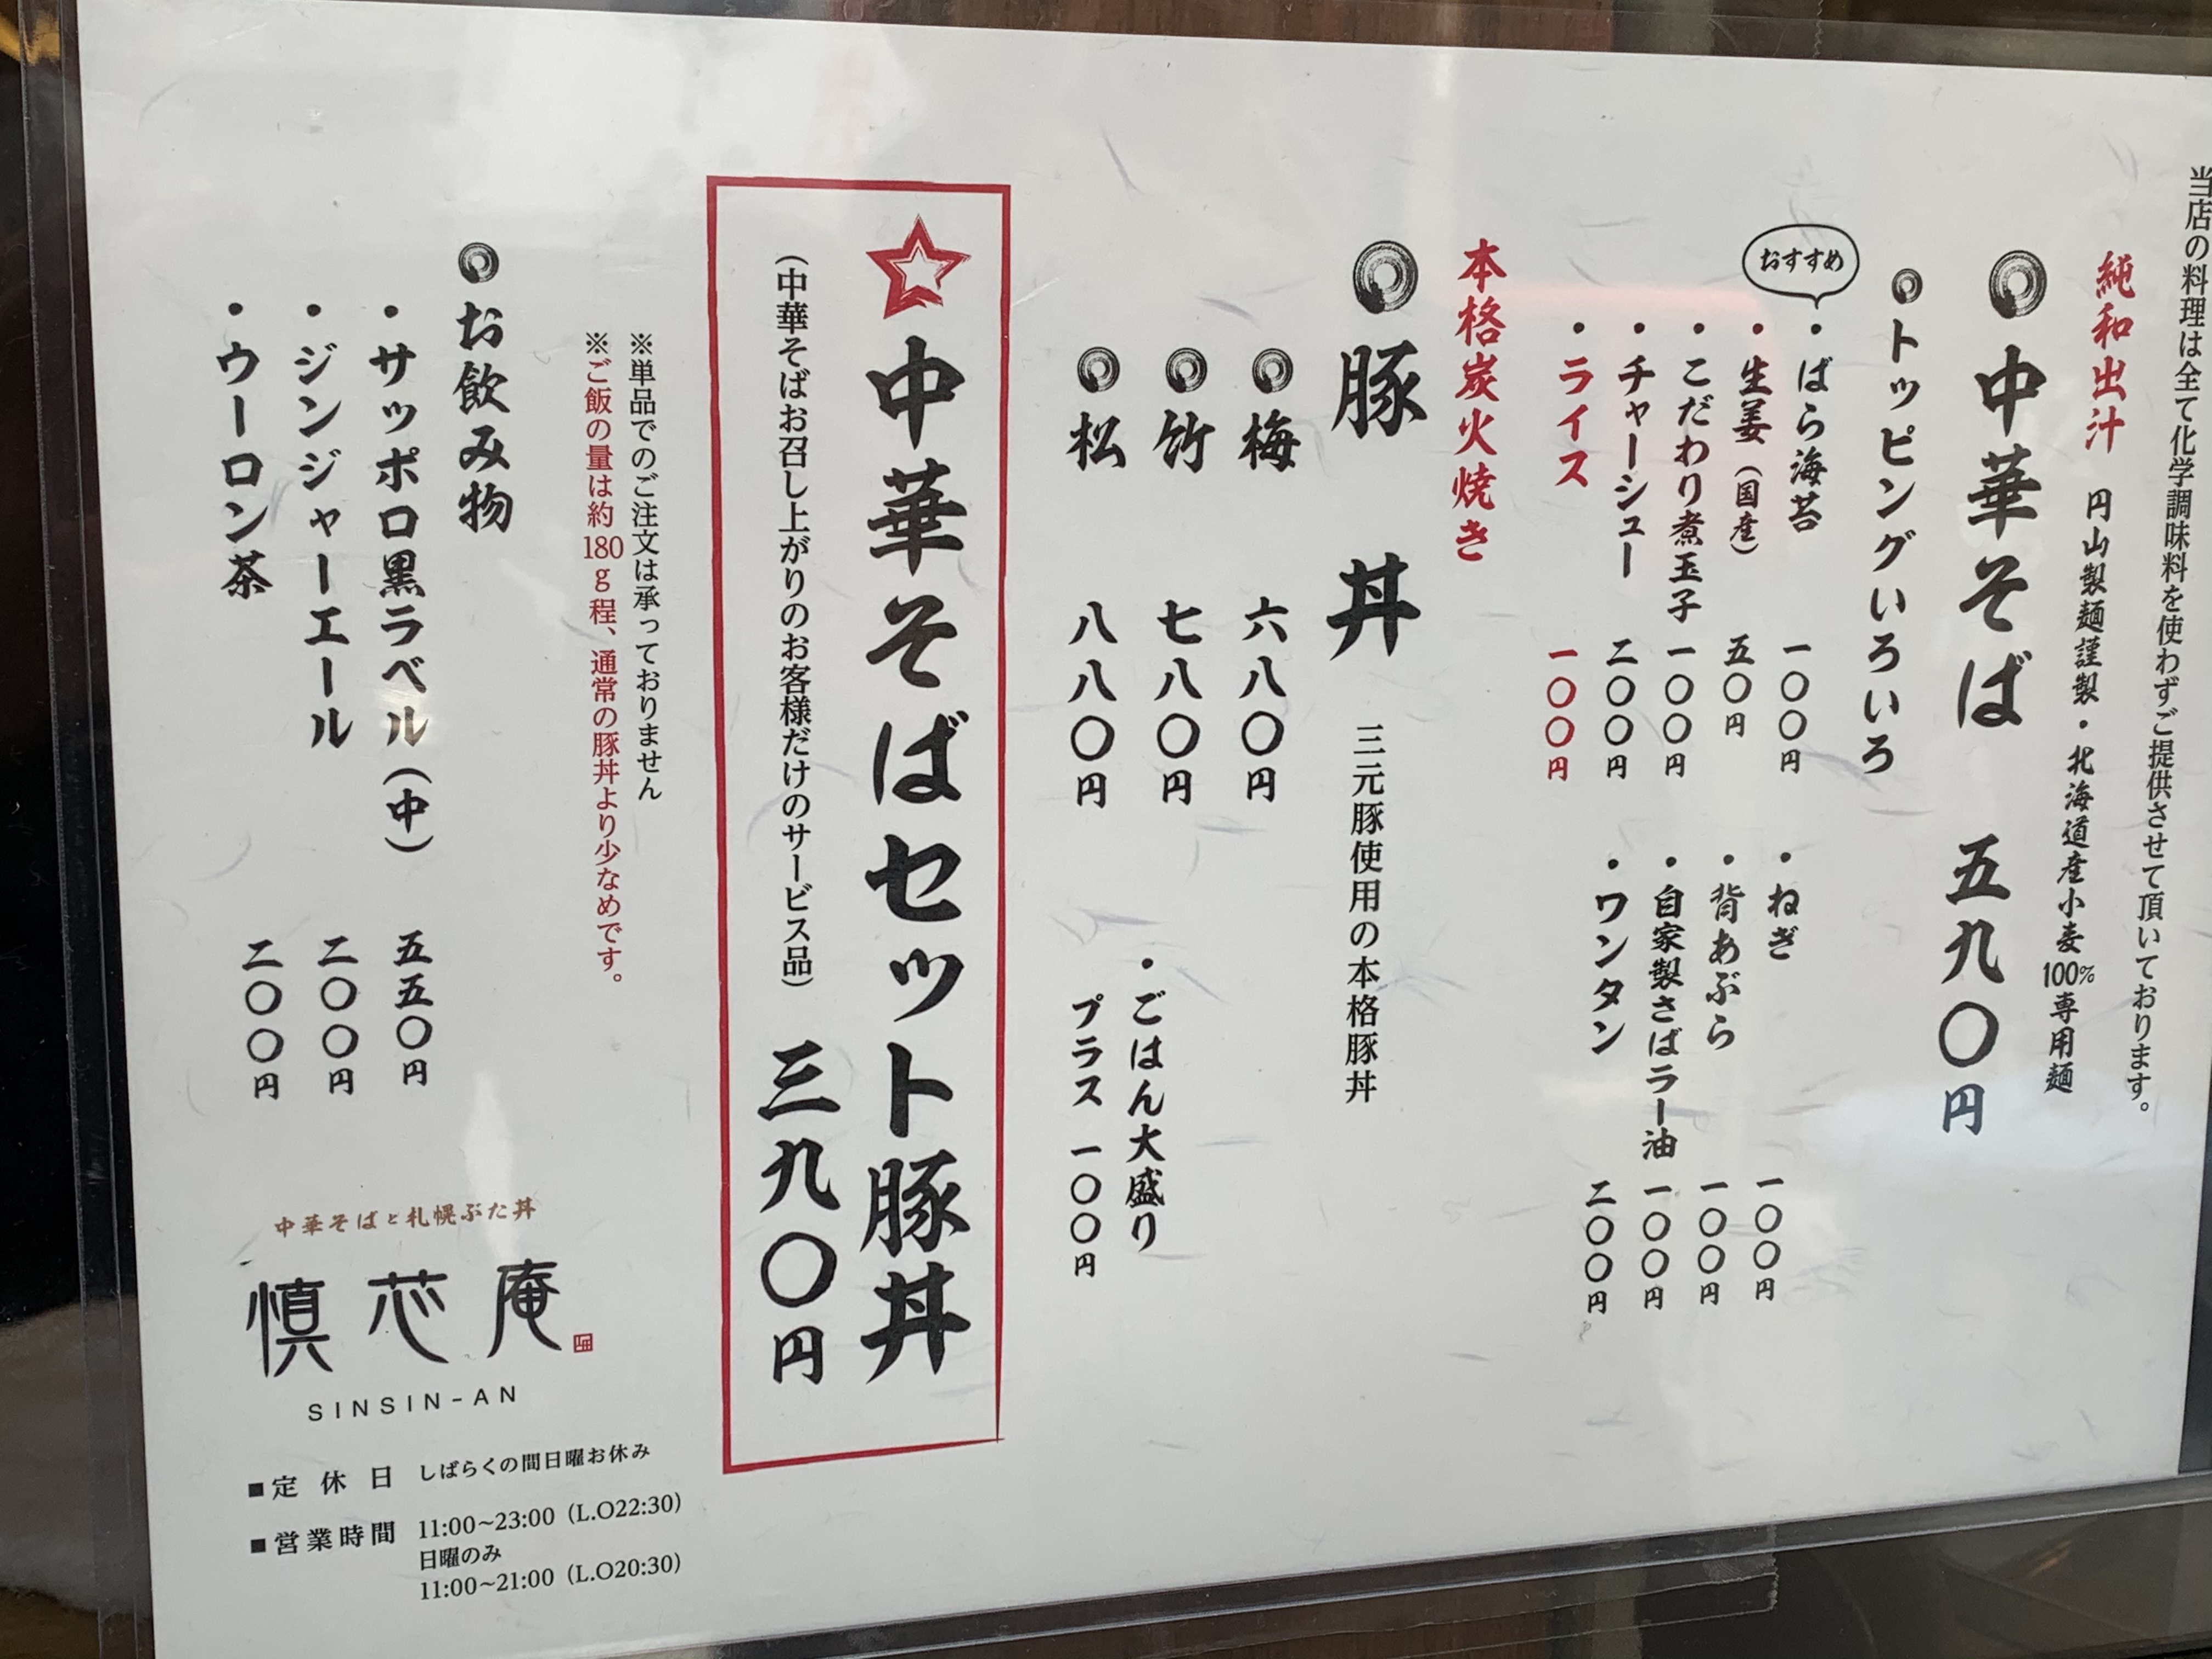 当店の料理は全て化学調味料を使わずご提供させて頂いております。
純和出汁 円山製麺謹製・北海道産小麦100%専用麺
中華そば 五九〇円
トッピングいろいろ
おすすめ
・ばら海苔 一〇〇円
・生姜(国産) 五〇円
・こだわり煮玉子 一〇〇円
・チャーシュー 二〇〇円
・ライス 一〇〇円
・ねぎ 一〇〇円
・背あぶら 一〇〇円
・自家製さばラー油 一〇〇円
・ワンタン 二〇〇円
本格炭火焼き
豚丼 三元豚使用の本格豚丼
梅 六八〇円
竹 七八〇円
松 八八〇円
・ごはん大盛り
プラス 一〇〇円
☆中華そばセット豚丼
(中華そばお召し上がりのお客様だけのサービス品) 三九〇円
※単品でのご注文は承っておりません
※ご飯の量は約180g程、通常の豚丼より少なめです。
お飲み物
・サッポロ黒ラベル(中) 五五〇円
・ジンジャーエール 二〇〇円
・ウーロン茶 二〇〇円
中華そばと札幌ぶた丼
慎芯庵
SINSIN-AN
■定休日 しばらくの間日曜お休み
■営業時間 11:00~23:00 (L.O22:30)
日曜のみ
11:00~21:00 (L.O20:30)